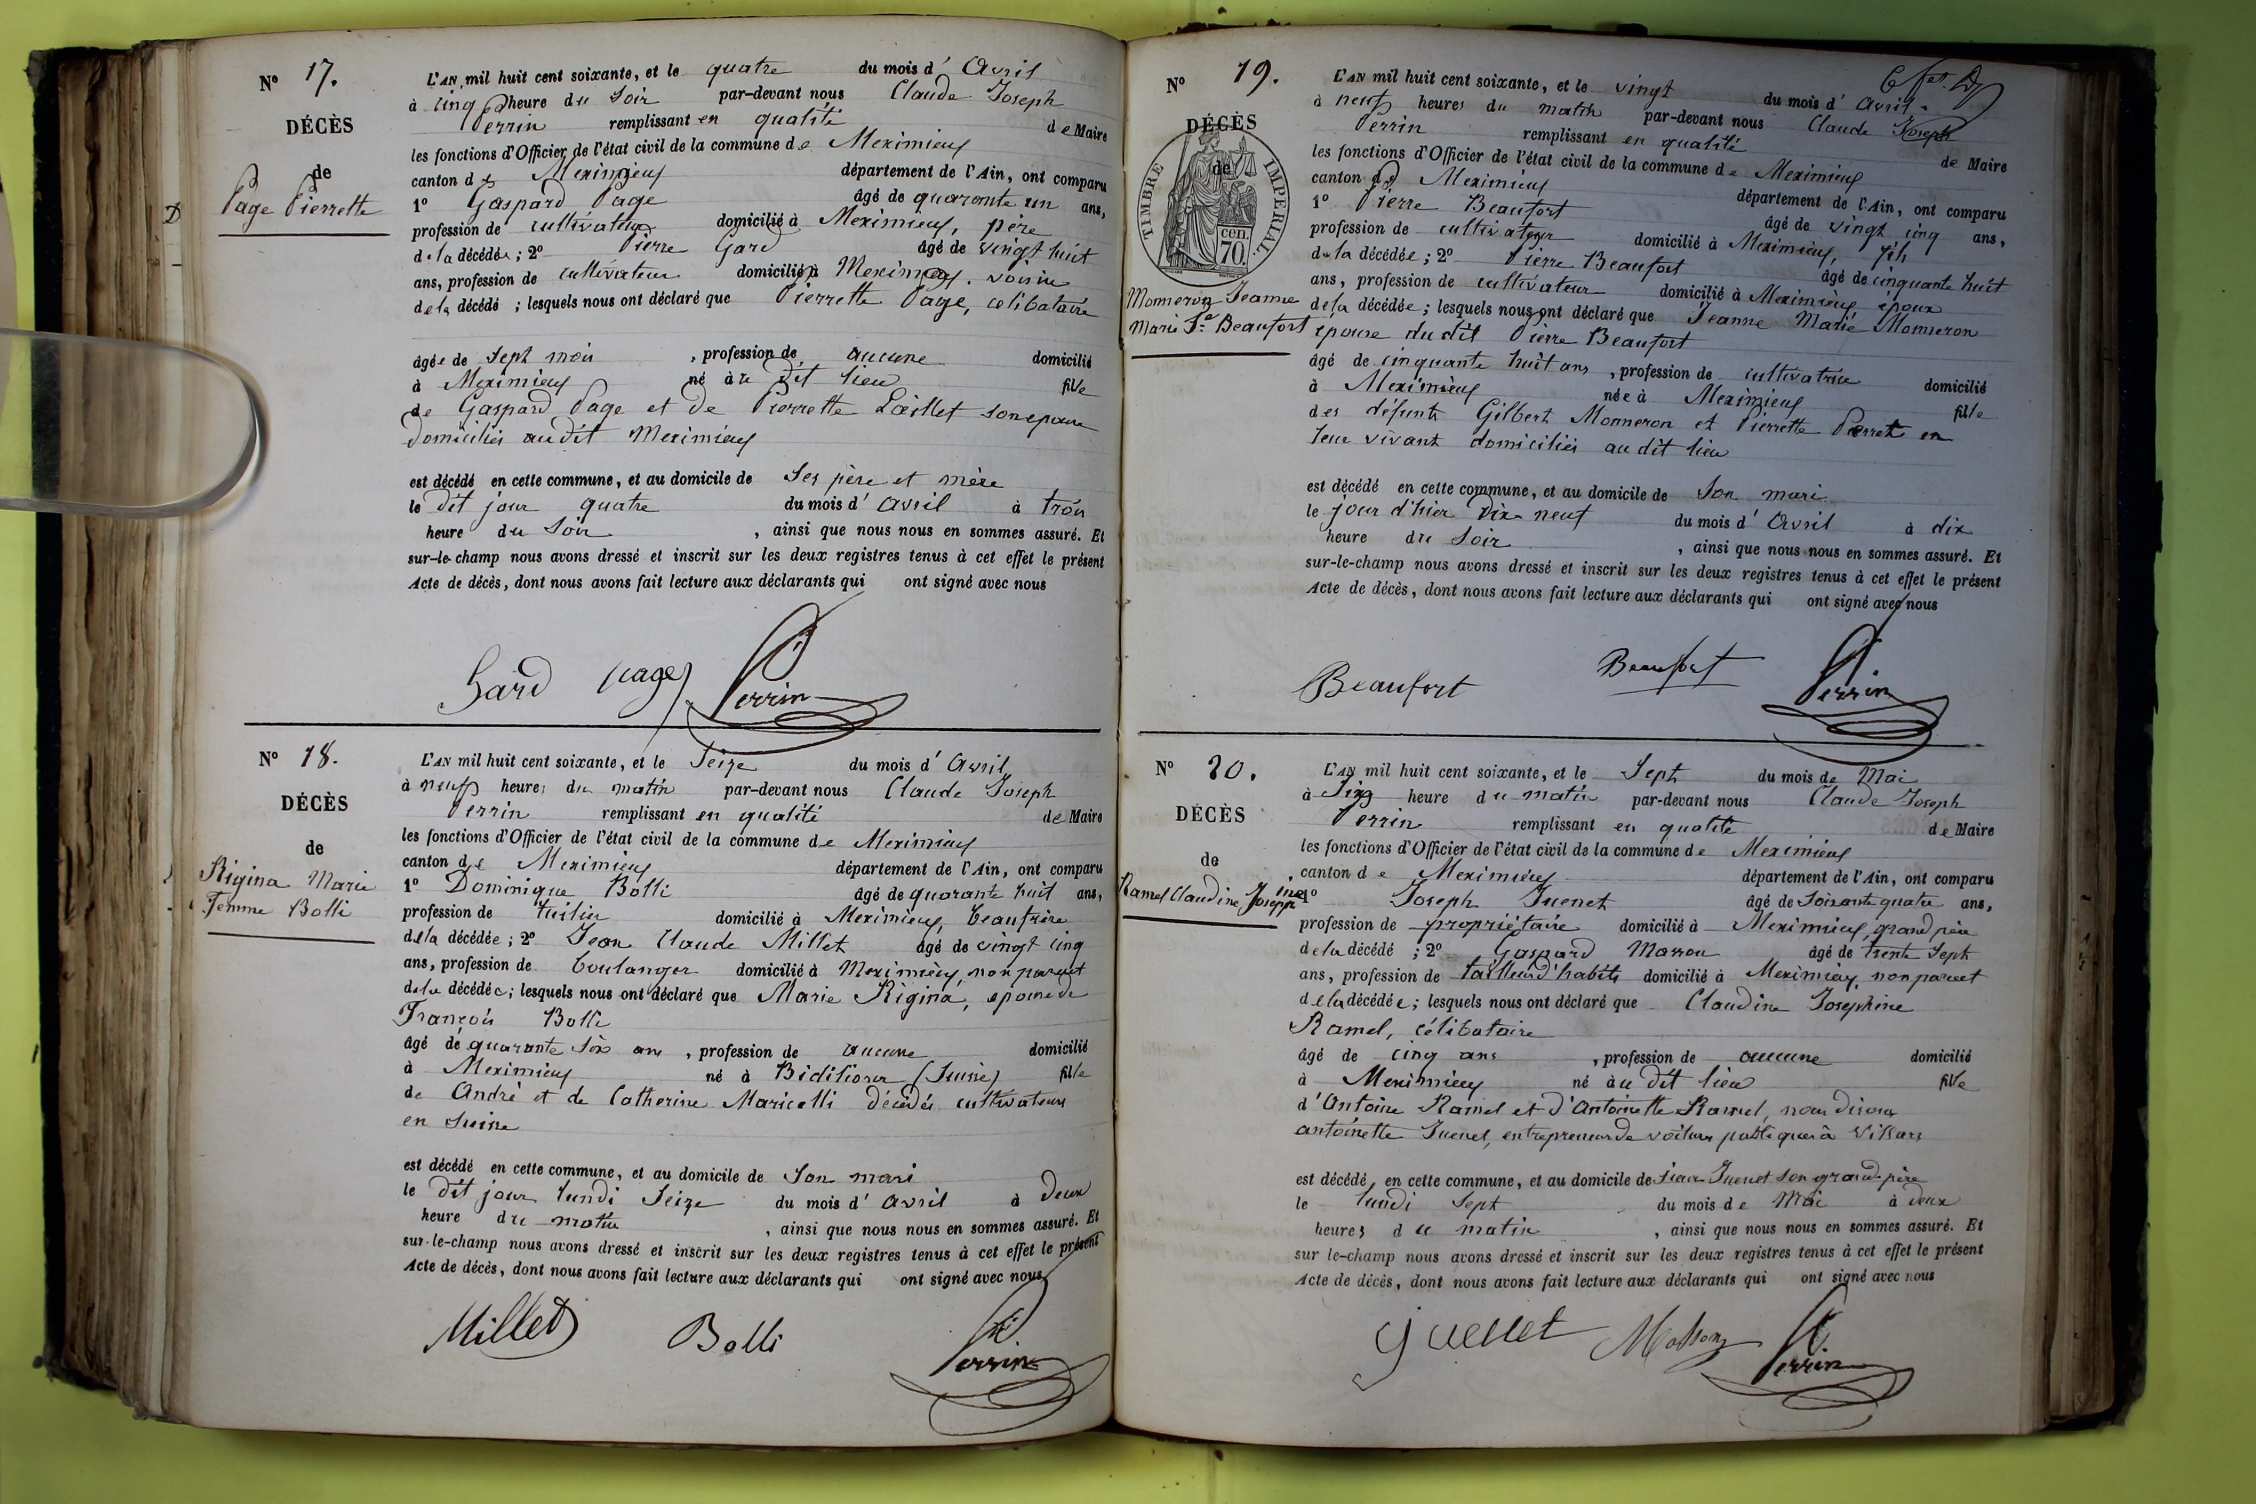 Nº 17.
DÉCÈS
de
Page Pierrette
D
L'AN mil huit cent soixante, et le quatre du mois d' Avril
à cinq heure du Soir par-devant nous Claude Joseph
Perrin remplissant en qualité de Maire
les fonctions d'Officier de l'état civil de la commune de Meximieux
canton de Meximieux département de l'Ain, ont comparu
1º Gaspard Page âgé de quarante un ans,
profession de cultivateur domicilié à Meximieux, père
de la décédée ; 2º Pierre Gard âgé de vingt huit
ans, profession de cultivateur domicilié à Meximieux, voisin
de la décédé ; lesquels nous ont déclaré que Pierrette Page, célibataire
âgée de Sept mois , profession de aucune domicilié
à Meximieux né à u dit lieu fille
de Gaspard Page et de Pierrette Lœillet son épouse
domiciliés audit Meximieux
est décédé en cette commune, et au domicile de Ses père et mère
le dit jour quatre du mois d' avril à trois
heure du Soir , ainsi que nous nous en sommes assuré. Et
sur-le-champ nous avons dressé et inscrit sur les deux registres tenus à cet effet le présent
Acte de décès, dont nous avons fait lecture aux déclarants qui ont signé avec nous
Gard page Perrin
Nº 18.
DÉCÈS
de
Rigina Marie
Femme Bolli
L'AN mil huit cent soixante, et le Seize du mois d' Avril
à neuf heures du matin par-devant nous Claude Joseph
Perrin remplissant en qualité de Maire
les fonctions d'Officier de l'état civil de la commune de Meximieux
canton de Meximieux département de l'Ain, ont comparu
1º Dominique Bolli âgé de quarante huit ans,
profession de tuilier domicilié à Meximieux, beaufrère
de la décédée ; 2º Jean Claude Millet âgé de vingt cinq
ans, profession de boulanger domicilié à Meximieux, non parent
de la décédée ; lesquels nous ont déclaré que Marie Rigina, épouse de
François Bolli
âgé de quarante six ans , profession de aucune domicilié
à Meximieux né à (Suisse) fille
de André et de Catherine Maricelli décédés cultivateurs
en Suisse
est décédé en cette commune, et au domicile de Son mari
le dit jour lundi Seize du mois d' avril à deux
heure du matin , ainsi que nous nous en sommes assuré. Et
sur-le-champ nous avons dressé et inscrit sur les deux registres tenus à cet effet le présent
Acte de décès, dont nous avons fait lecture aux déclarants qui ont signé avec nous
Millet Bolli Perrin
Nº 19.
DÉCÈS
de
TIMBRE IMPERIAL
70 cen.
Monneron Jeanne
Marie Fe Beaufort
L'AN mil huit cent soixante, et le vingt du mois d' Avril
à neuf heures du matin par-devant nous Claude Joseph
Perrin remplissant en qualité de Maire
les fonctions d'Officier de l'état civil de la commune de Meximieux
canton de Meximieux département de l'Ain, ont comparu
1º Pierre Beaufort âgé de vingt cinq ans,
profession de cultivateur domicilié à Meximieux, fils
de la décédée ; 2º Pierre Beaufort âgé de cinquante huit
ans, profession de cultivateur domicilié à Meximieux époux
de la décédée ; lesquels nous ont déclaré que Jeanne Marie Monneron
épouse du dit Pierre Beaufort
âgé de cinquante huit ans , profession de cultivatrice domicilié
à Meximieux née à Meximieux fille
des défunts Gilbert Monneron et Pierrette Pierret en
leur vivant domiciliés au dit lieu
est décédé en cette commune, et au domicile de Son mari
le jour d'hier dix neuf du mois d' Avril à dix
heure du Soir , ainsi que nous nous en sommes assuré. Et
sur-le-champ nous avons dressé et inscrit sur les deux registres tenus à cet effet le présent
Acte de décès, dont nous avons fait lecture aux déclarants qui ont signé avec nous
Beaufort Beaufort Perrin
Nº 20.
DÉCÈS
de
Ramel Claudine Josephine
L'AN mil huit cent soixante, et le Sept du mois de Mai
à cinq heure du matin par-devant nous Claude Joseph
Perrin remplissant en qualité de Maire
les fonctions d'Officier de l'état civil de la commune de Meximieux
canton de Meximieux département de l'Ain, ont comparu
1º Joseph Juenet âgé de Soixante quatre ans,
profession de propriétaire domicilié à Meximieux, grand père
de la décédé ; 2º Gaspard Masson âgé de trente Sept
ans, profession de tailleur d'habits domicilié à Meximieux, non parent
de la décédée ; lesquels nous ont déclaré que Claudine Josephine
Ramel, célibataire
âgé de cinq ans , profession de aucune domicilié
à Meximieux né à u dit lieu fille
d'Antoine Ramel et d'Antoinette Ramel, nous disons
antoinette Juenet, entrepreneur de voitures publiques à Villars
est décédé en cette commune, et au domicile de Sieur Juenet Son grand père
le lundi Sept du mois de Mai à deux
heures du matin , ainsi que nous nous en sommes assuré. Et
sur le-champ nous avons dressé et inscrit sur les deux registres tenus à cet effet le présent
Acte de décès, dont nous avons fait lecture aux déclarants qui ont signé avec nous
Juenet Masson Perrin